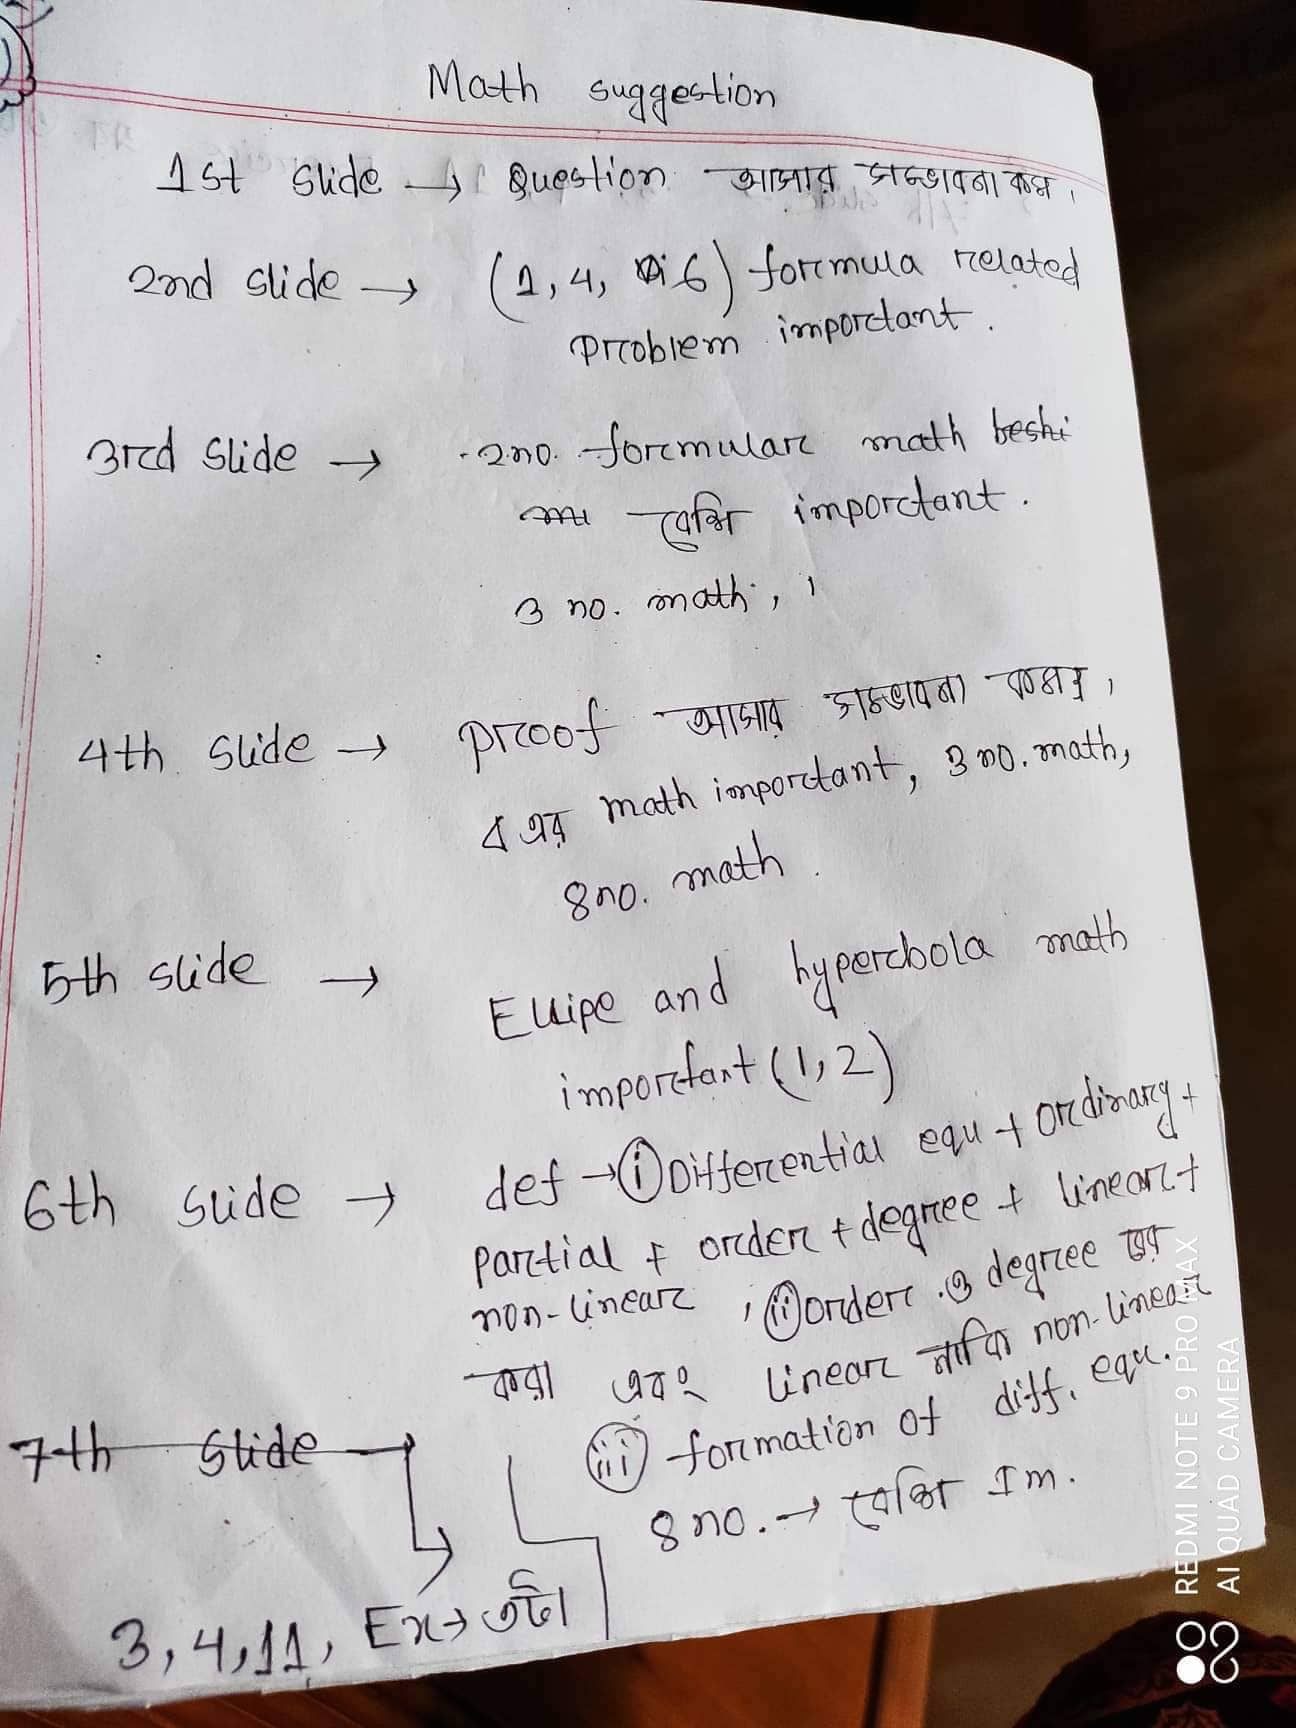 Math suggestion
1st slide → Question আসার সম্ভাবনা কম।
2nd slide → (1, 4, 6) formula related
problem important.
3rd slide → 2no. formular math beshi
বেশি important.
3 no. math,
4th slide → proof আসার সম্ভাবনা কম,
এর math important, 3 no. math,
8no. math.
5th slide → Ellipe and hyperbola math
important (1,2)
6th slide → def → (i) Differential equ + ordinary +
partial + order + degree + linear +
non-linear, (ii) order ও degree বের
করা এবং linear নাকি non-linear
(iii) formation of diff. equ.
8no. → বেশি Im.
7th slide →
3, 4, 11, Ex → ৩টা
REDMI NOTE 9 PRO MAX
AI QUAD CAMERA